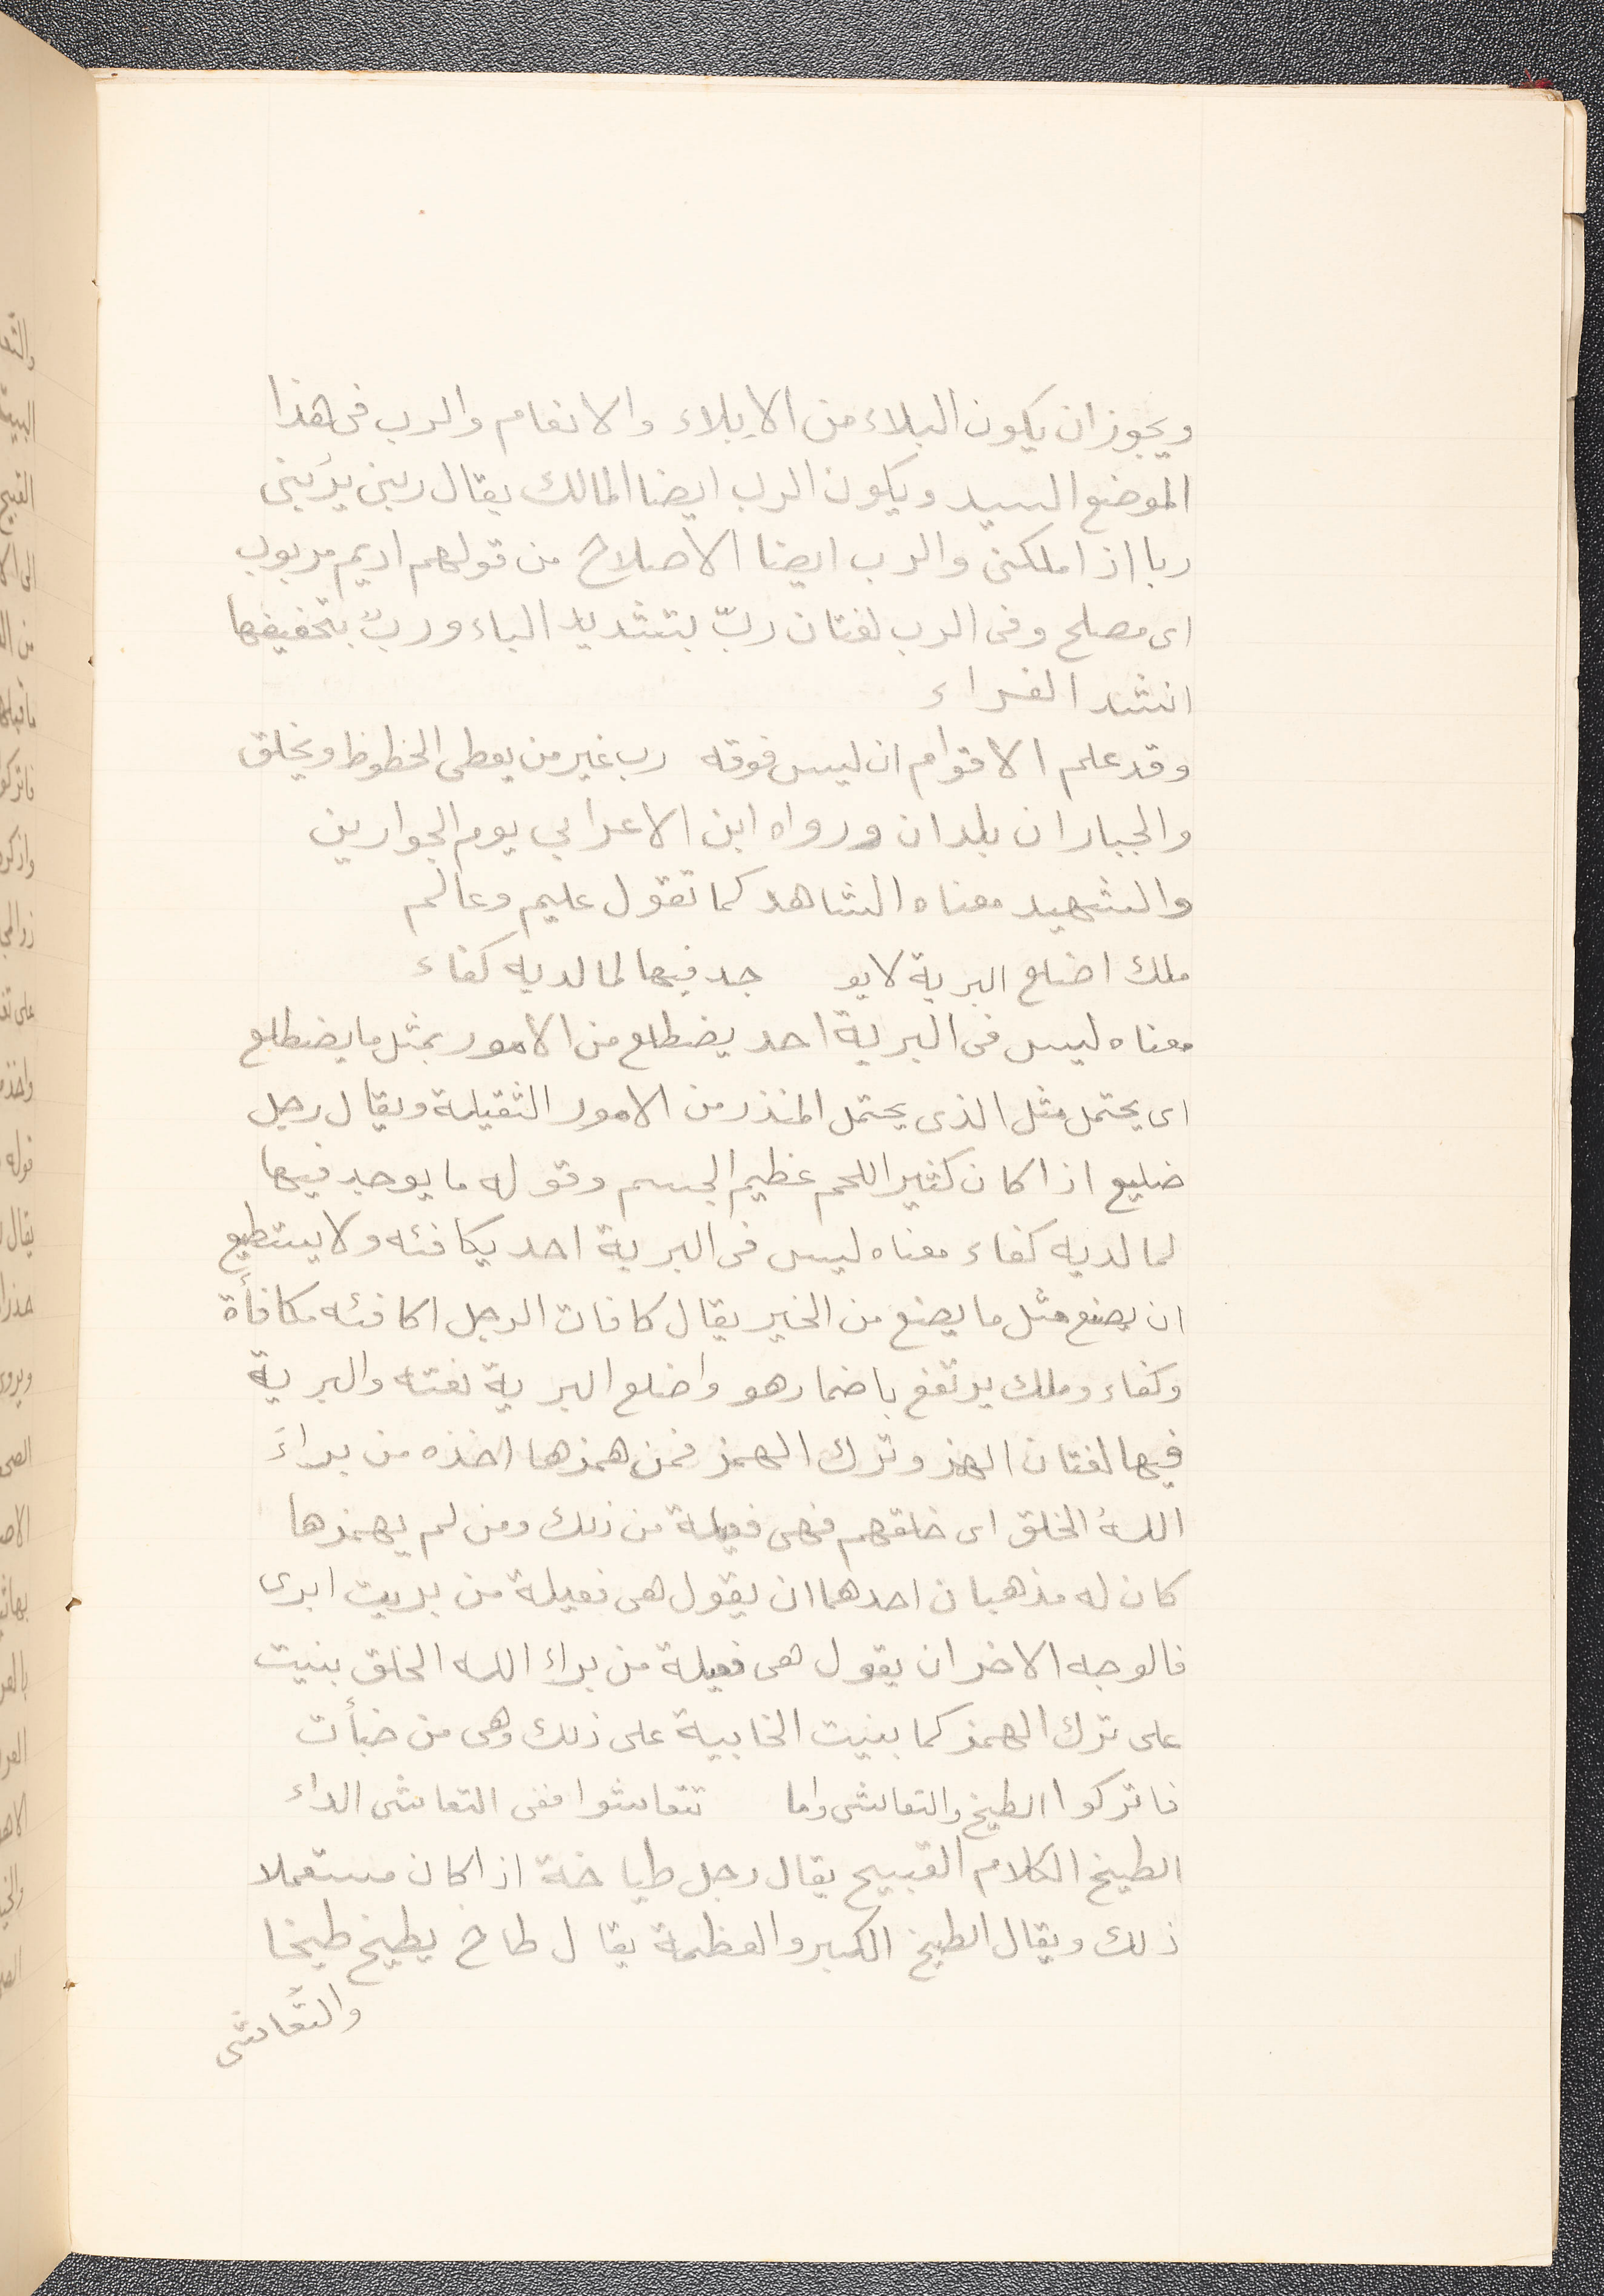 ويجوز ان يكون البلاء من الابلاء والانعام والرب فى هذا
الموضع السيد ويكون الرب ايضا المالك يقال ربنى يرُبنى
ربا اذا ملكنى والرب ايضا الاصلاح من قولهم اديم مربوب
اى مصلح وفى الرب لغتان ربّ بتشديد الباء وربُ بتخفيفها
انشد الفراء
وقد علم الاقوام ان ليس فوقه رب غير من يعطى الحظوظ ويخلق
والجباران بلدان ورواه ابن الاعرابي يوم الجوارين
والشهيد معناه الشاهد كما تقول عليم وعالم
ملك اضلع البرية لا يو جد فيها لما لديه كفاء
معناه ليس فى البرية احد يضطلع من الامور بمثل ما يضطلع
اى يحتمل مثل الذى يحتمل المنذر من الامور الثقيلة ويقال رجل
ضليع اذا كان كثير اللحم عظيم الجسم وقوله ما يوجد فيها
لما لديه كفاء معناه ليس فى البرية احد يكافئه ولا يستطيع
ان يصنع مثل ما يصنع من الخير يقال كافات الرجل اكافئه مكافأة
وكفاء وملك يرتفع باضمار هو واضلع البرية نعته والبرية
فيها لغتان الهمز وترك الهمز فمن همزها اخذه من براءَ
اللهُ الخلق اى خلقهم فهى فعيلة من ذلك ومن لم يهمزها
كان له مذهبان احدهما ان يقول هى فعيلة من بريت ابرى
فالوجه الاخر ان يقول هى فعيلة من براء الله الخلق بنيت
على ترك الهمز كما بنيت الخابية على ذلك وهى من خبأت
فاتركوا الطيخ والتعاشى واما تتعاشوا ففى التعاشى الداء
الطيخ الكلام القبيح يقال رجل طياخة اذا كان مستعملا
ذلك ويقال الطيخ الكبر والعظمة يقال طاخ يطيخ طيخا
والتعاشى